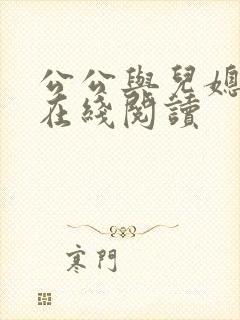 公公與兒媳
在綫閱讀
寒門